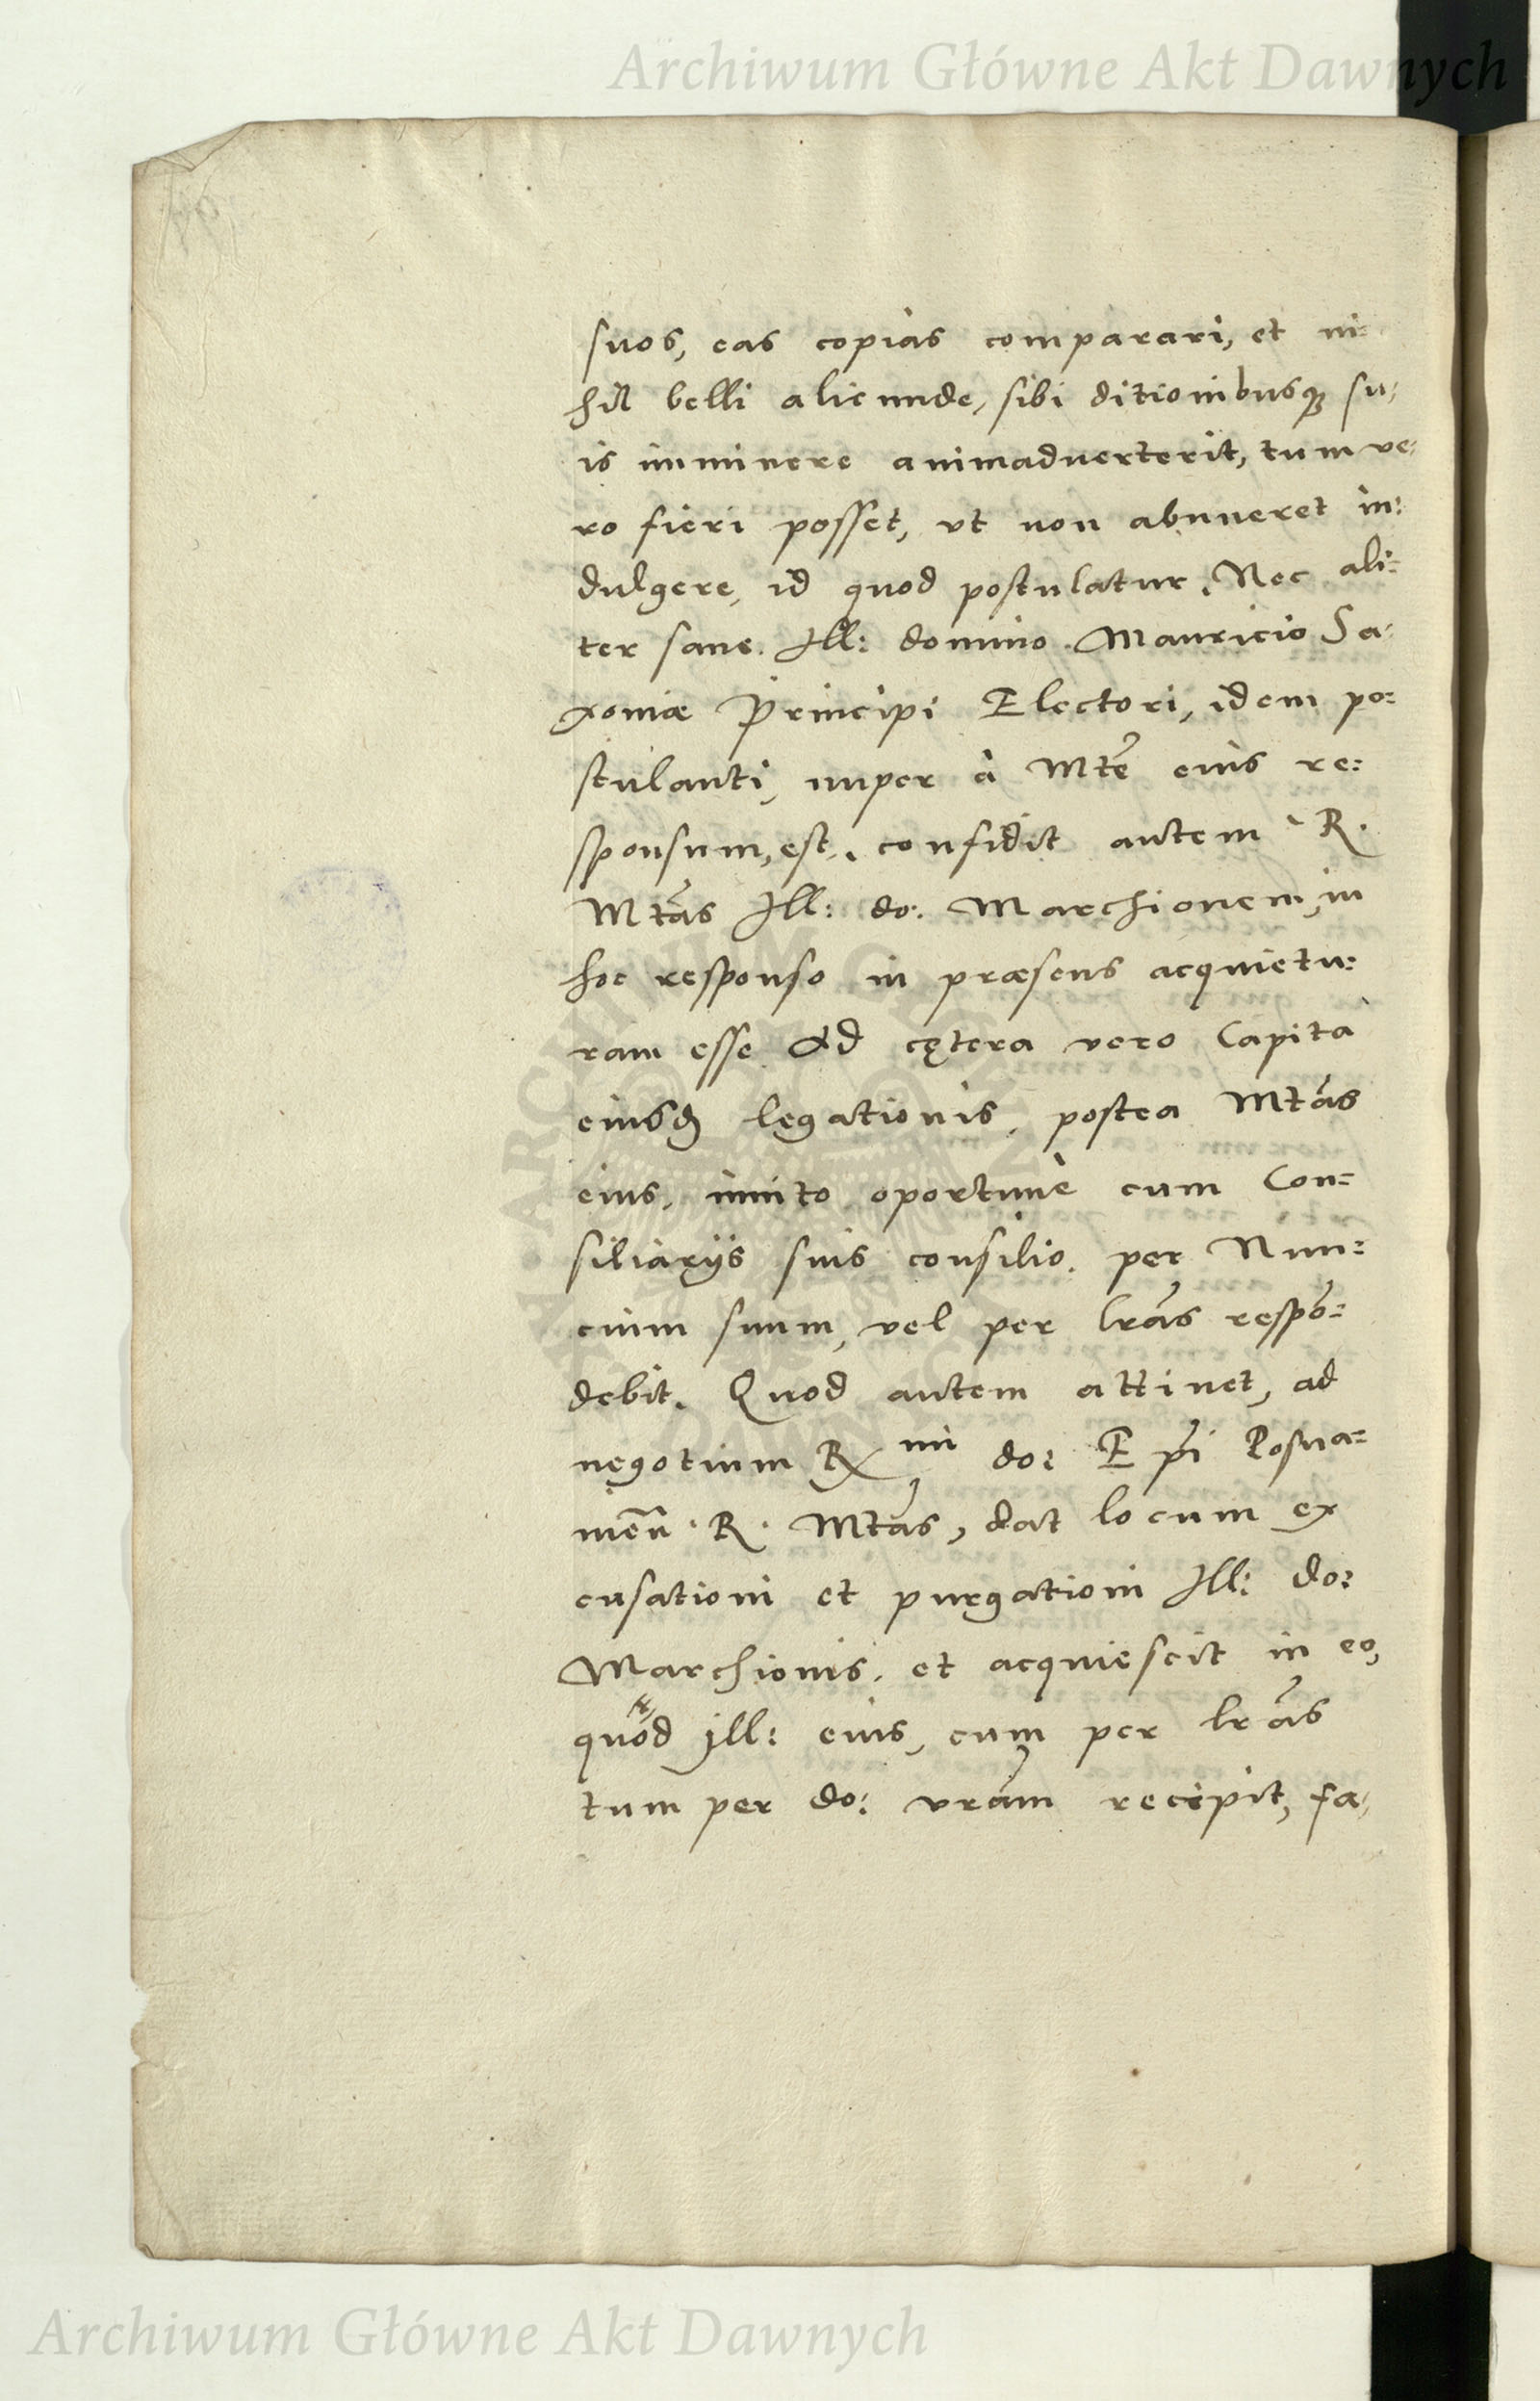 Archiwum Główne Akt Dawnych
suos, eas copias comparari, et ni=
hil belli alicunde, sibi ditionibusq; su=
is imminere animaduerterit, tum ve=
ro fieri posset, vt non abnueret in=
dulgere, id quod postulatur. Nec ali=
ter sane. Ill: domino Mauricio Sa=
xoniæ Principi Electori, idem po=
stulanti, nuper à Mte eius re=
sponsum, est. confidit autem R.
Mtas Ill: do: Marchionem, in
hoc responso in præsens acquietu=
ram esse Ad cętera vero Capita
eiusd legationis, postea Mtas
eius, inito oportunè cum Con=
siliarijs suis consilio, per Nun=
cium suum, vel per lras respo=
debit. Quod autem attinet, ad
negotium Rmi do: Epi Posna=
nien R. Mtas, dat locum ex
cusationi et purgationi Ill: do:
Marchionis, et acquiescit in eo,
quod ill: eius, cum per lras
tum per do: vram recipit, fa=
Archiwum Główne Akt Dawnych